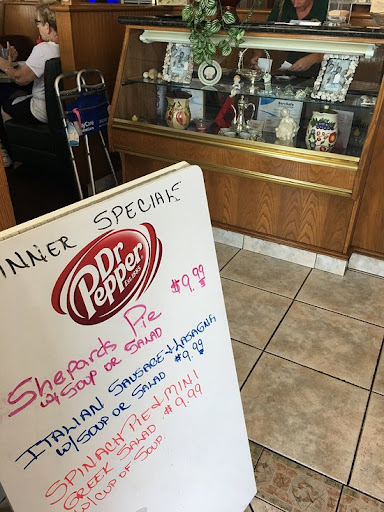 INNER SPECIALS
Dr Pepper
EST. 1885
Shepards Pie $9.99
W/ SOUP OR SALAD
ITALIAN SAUSAGE & LASAGNA
W/ SOUP OR SALAD $9.99
SPINACH PIE & MINI
GREEK SALAD $9.99
W/ CUP OF SOUP